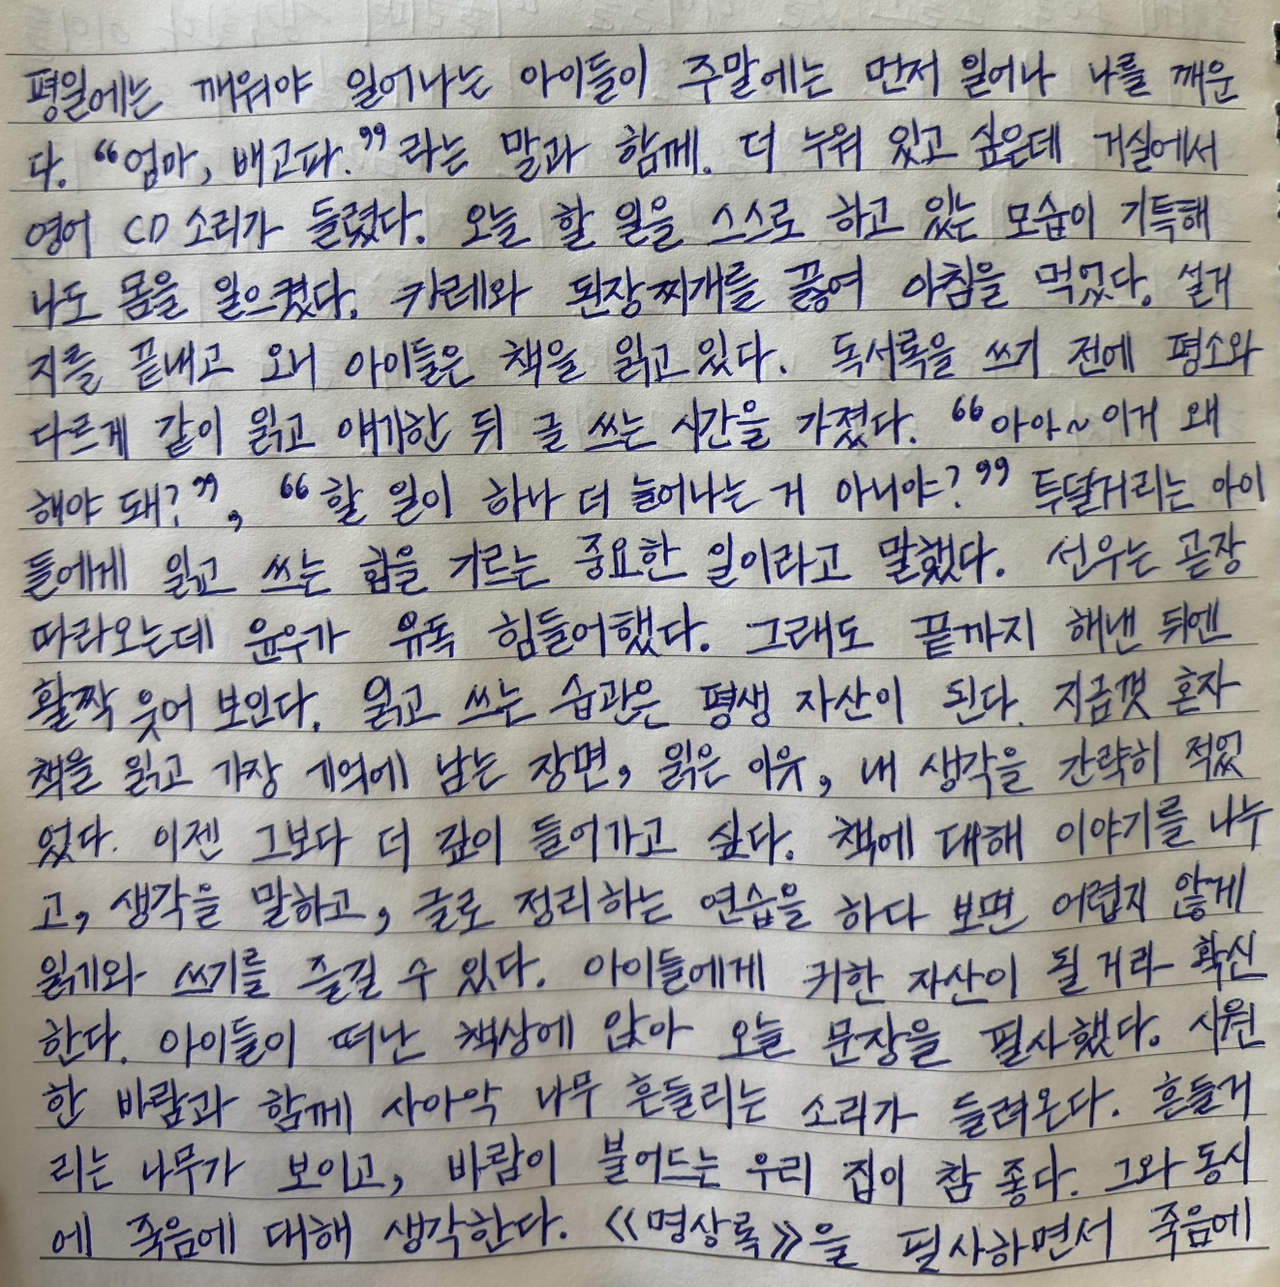 평일에는 깨워야 일어나는 아이들이 주말에는 먼저 일어나 나를 깨운
다. “엄마, 배고파.” 라는 말과 함께. 더 누워 있고 싶은데 거실에서
영어 CD 소리가 들렸다. 오늘 할 일을 스스로 하고 있는 모습이 기특해
나도 몸을 일으켰다. 카레와 된장찌개를 끓여 아침을 먹었다. 설거
지를 끝내고 오니 아이들은 책을 읽고 있다. 독서록을 쓰기 전에 평소와
다르게 같이 읽고 얘기한 뒤 글 쓰는 시간을 가졌다. “아아~ 이거 왜
해야 돼?”, “할 일이 하나 더 늘어나는 거 아니야?” 투덜거리는 아이
들에게 읽고 쓰는 힘을 기르는 중요한 일이라고 말했다. 선우는 곧장
따라오는데 윤우가 유독 힘들어했다. 그래도 끝까지 해낸 뒤엔
활짝 웃어 보인다. 읽고 쓰는 습관은 평생 자산이 된다. 지금껏 혼자
책을 읽고 가장 기억에 남는 장면, 읽은 이유, 내 생각을 간략히 적었
었다. 이젠 그보다 더 깊이 들어가고 싶다. 책에 대해 이야기를 나누
고, 생각을 말하고, 글로 정리하는 연습을 하다 보면 어렵지 않게
읽기와 쓰기를 즐길 수 있다. 아이들에게 귀한 자산이 될 거라 확신
한다. 아이들이 떠난 책상에 앉아 오늘 문장을 필사했다. 시원
한 바람과 함께 사아악 나무 흔들리는 소리가 들려온다. 흔들거
리는 나무가 보이고, 바람이 불어드는 우리 집이 참 좋다. 그와 동시
에 죽음에 대해 생각한다. 《명상록》을 필사하면서 죽음에